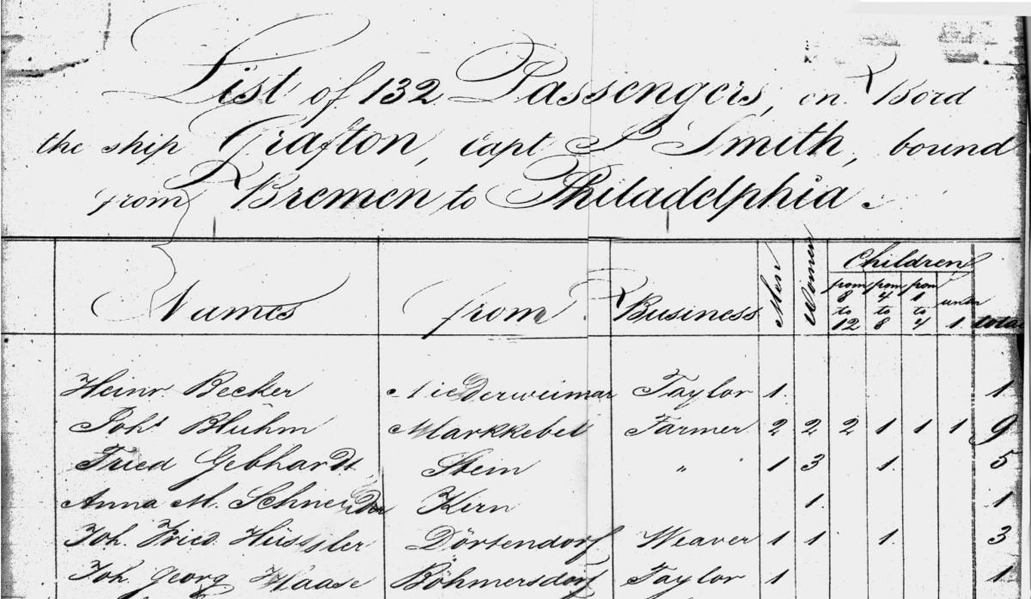 List of 132 Passengers, on Bord
the ship Grafton, capt J Smith, bound
from Bremen to Philadelphia.
Names from Business Men Women Children total
from 8 to 12 from 4 to 8 from 1 to 4 under 1
Heinr Becker Niederweimar Taylor 1 1
Joh Blühm Markkebel Farmer 2 2 2 1 1 1 9
Fried Gebhardt Stein " 1 3 1 5
Anna M. Schneider Kern 1 1
Joh. Fried. Hüssler Dörtendorf Weaver 1 1 1 3
Joh. Georg Haase Böhmersdorf Taylor 1 1